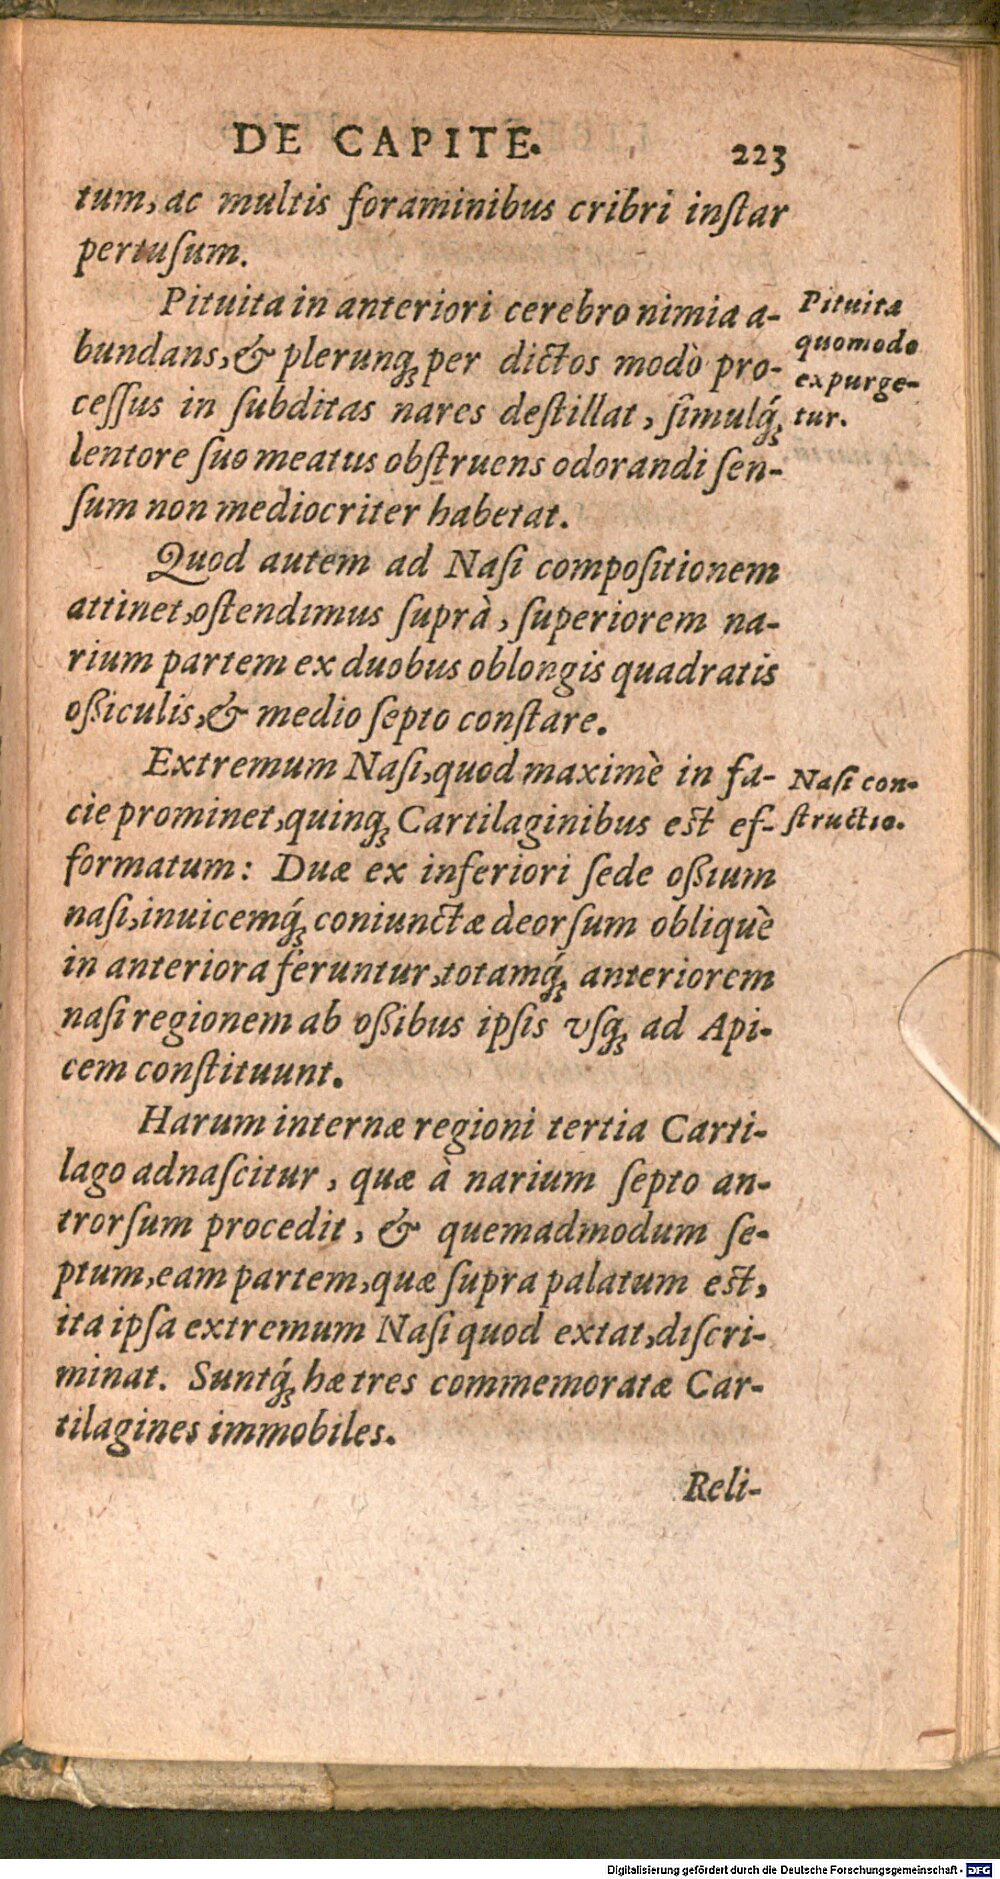 DE CAPITE. 223
tum, ac multis foraminibus cribri inſtar
pertuſum.
Pituita in anteriori cerebro nimia a-
bundans, & plerunq́ue per dictos modò pro-
ceſſus in ſubditas nares deſtillat, ſimulq́;
lentore ſuo meatus obſtruens odorandi ſen-
ſum non mediocriter habetat.
Pituita
quomodo
expurge-
tur.
Quod autem ad Naſi compoſitionem
attinet, oſtendimus ſuprà, ſuperiorem na-
rium partem ex duobus oblongis quadratis
oßiculis, & medio ſepto conſtare.
Extremum Naſi, quod maximè in fa-
cie prominet, quinq; Cartilaginibus eſt ef-
formatum: Duæ ex inferiori ſede oßium
naſi, inuicemq́; coniunctæ deorſum obliquè
in anteriora feruntur, totamq́; anteriorem
naſi regionem ab oßibus ipſis vſq; ad Api-
cem conſtituunt.
Naſi con-
ſtructio.
Harum internæ regioni tertia Carti-
lago adnaſcitur, quæ à narium ſepto an-
trorſum procedit, & quemadmodum ſe-
ptum, eam partem, quæ ſupra palatum eſt,
ita ipſa extremum Naſi quod extat, diſcri-
minat. Suntq́; hæ tres commemoratæ Car-
tilagines immobiles.
Reli-
Digitalisierung gefördert durch die Deutsche Forschungsgemeinschaft - DFG